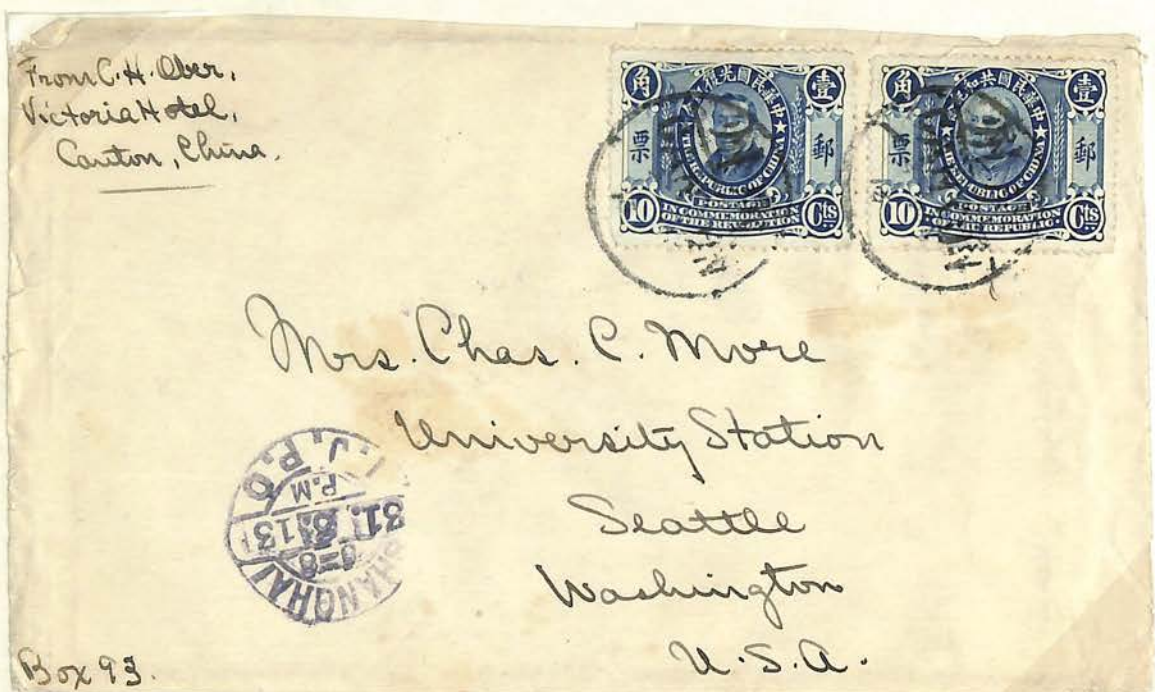 From C. H. Ober,
Victoria Hotel,
Canton, China.
壹角
中華民國光復
郵票
THE REPUBLIC OF CHINA
POSTAGE
10 Cts
IN COMMEMORATION
OF THE REVOLUTION
壹角
中華民國共和
郵票
THE REPUBLIC OF CHINA
POSTAGE
10 Cts
IN COMMEMORATION
OF THE REPUBLIC
Mrs. Chas. C. More
University Station
Seattle
Washington
U.S.A.
SHANGHAI
31. 3. 13
P.M
I.J.P.O
Box 93.